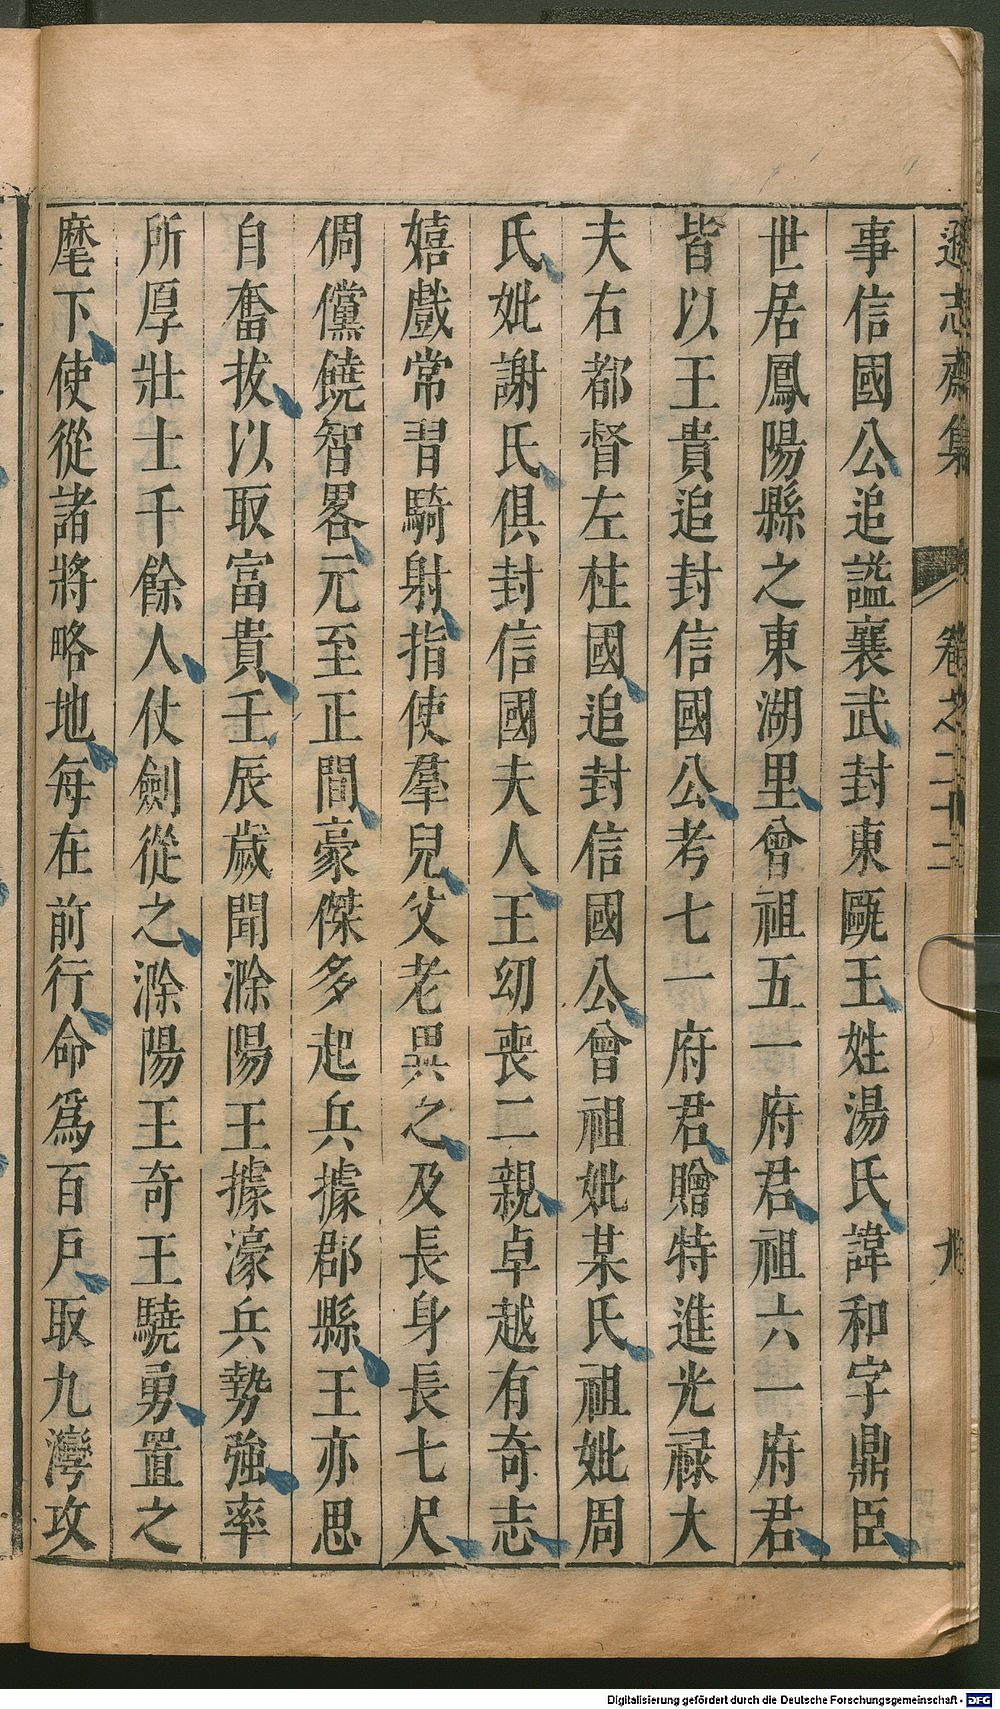 遜志齋集 卷之二十二 九
事信國公追謚襄武封東甌王姓湯氏諱和字鼎臣
世居鳳陽縣之東湖里曾祖五一府君祖六一府君
皆以王貴追封信國公考七一府君贈特進光祿大
夫右都督左柱國追封信國公曾祖妣某氏祖妣周
氏妣謝氏俱封信國夫人王幼喪二親卓越有奇志
嬉戲常習騎射指使羣兒父老異之及長身長七尺
倜儻饒智畧元至正間豪傑多起兵據郡縣王亦思
自奮拔以取富貴壬辰歲聞滁陽王據濠兵勢強率
所厚壯士千餘人仗劍從之滁陽王奇王驍勇置之
麾下使從諸將略地每在前行命爲百戶取九灣攻
Digitalisierung gefördert durch die Deutsche Forschungsgemeinschaft - DFG